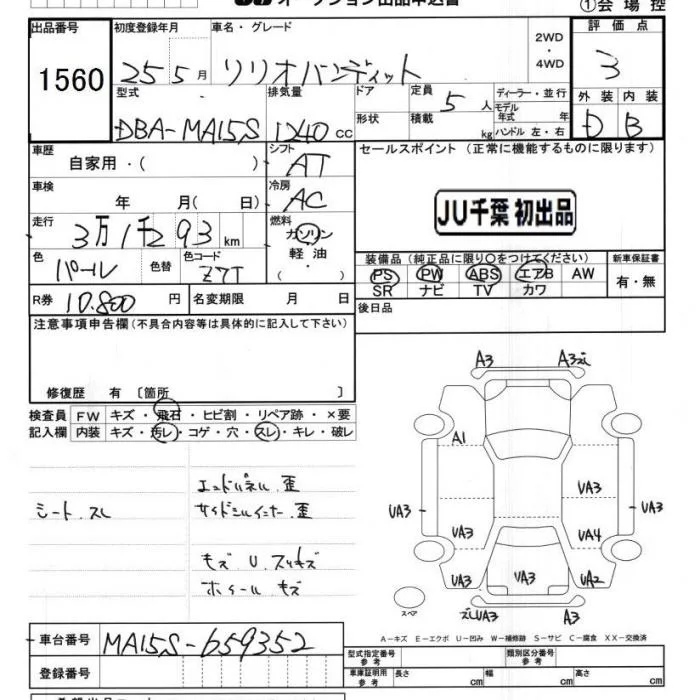 オークション出品申込書
①会場控
出品番号
1560
初度登録年月
25 5 月
車名・グレード
リリオバンディット
2WD
・
4WD
評価点
3
型式
DBA-MA15S
排気量
1240 cc
ドア
形状
定員
5 人
積載
kg
ディーラー・並行
モデル
年式 年
ハンドル 左・右
外装
D
内装
B
車歴
自家用・( )
シフト
AT
セールスポイント (正常に機能するものに限ります)
車検
年 月( 日)
冷房
AC
JU千葉 初出品
走行
3万1千293 km
燃料
ガソリン
・
軽油
・
( )
色
パール
色替
色コード
Z7T
装備品 (純正品に限り○をつけてください)
PS PW ABS エアB AW
SR ナビ TV カワ
新車保証書
有・無
R券
10.800 円
名変期限 月 日
後日品
注意事項申告欄(不具合内容等は具体的に記入して下さい)
修復歴 有 〔箇所 〕
検査員
記入欄
FW キズ・飛石・ヒビ割・リペア跡・×要
内装 キズ・汚レ・コゲ・穴・スレ・キレ・破レ
シート.スレ
エンドパネル.歪
サイドシルインナー.歪
キズ U.スリキズ
ホイール キズ
A3
A3
A1
UA3
UA3
UA3
UA3
UA4
UA3
UA3
UA2
スペア
UA3
A3
A-キズ E-エクボ U-凹み W-補修跡 S-サビ C-腐食 XX-交換済
車台番号
MA15S-659352
登録番号
型式指定番号
参考
類別区分番号
参考
車庫証明用
参考
長さ cm
幅 cm
高さ cm